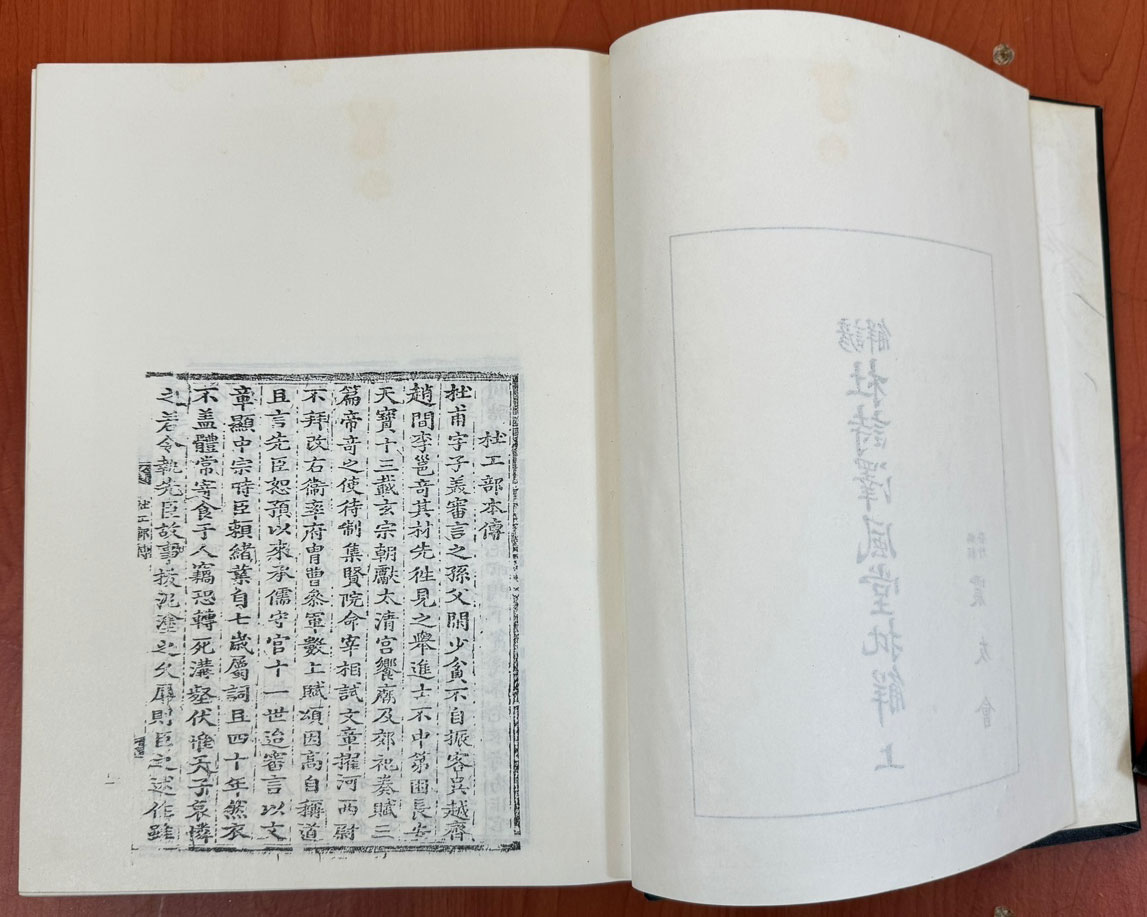 諺解
杜詩澤風堂批解 上
杜工部本傳
杜甫字子美審言之孫父閑少貧不自振客吳越齊
趙間李邕奇其材先徃見之舉進士不中第困長安
天寶十三載玄宗朝獻太清宮饗廟及郊祀奏賦三
篇帝奇之使待制集賢院命宰相試文章擢河西尉
不拜改右衞率府胄曹叅軍數上賦頌因高自稱道
且言先臣恕預以來承儒守官十一世迨審言以文
章顯中宗時臣賴緖業自七歲屬詞且四十年然衣
不盖體常寄食于人竊恐轉死溝壑伏惟天子哀憐
之若令執先臣故事拔泥塗之久辱則臣之述作雖
杜工部傳